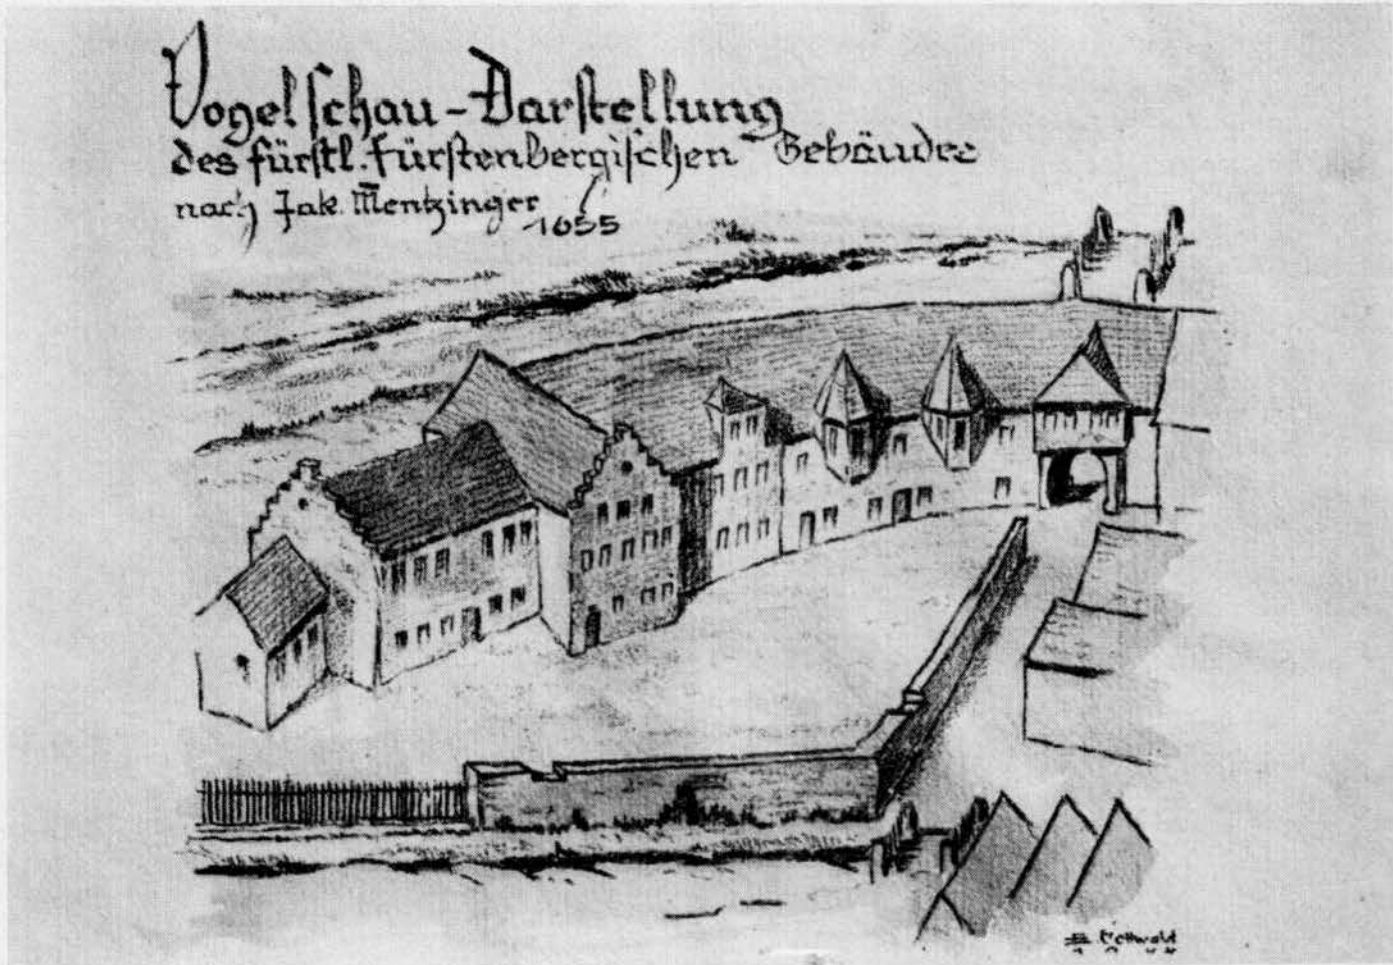 Vogelschau-Darstellung
des fürstl. fürstenbergischen Gebäudes
nach Jak. Mentzinger
1655